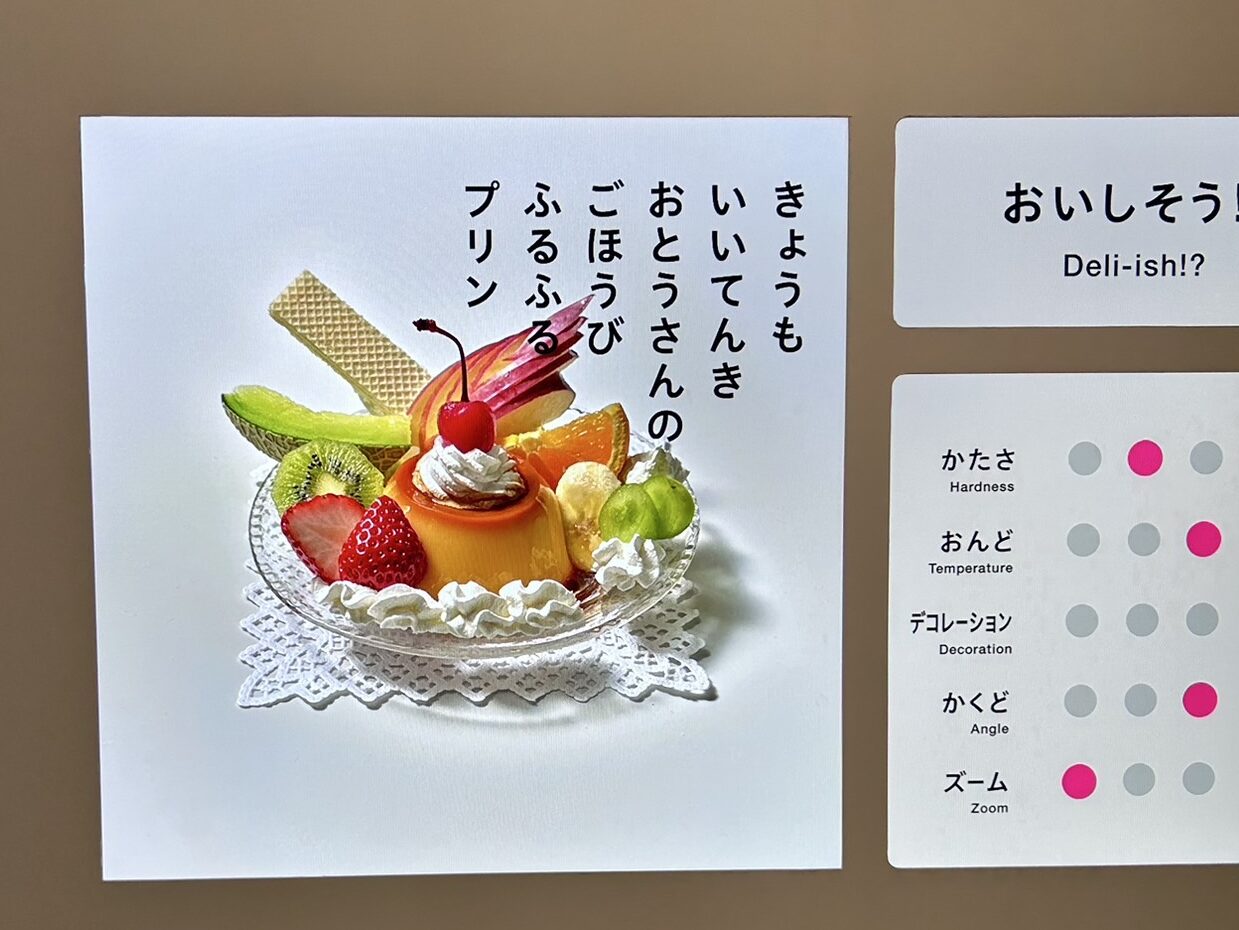 きょうも
いいてんき
おとうさんの
ごほうび
ふるふる
プリン
おいしそう!
Deli-ish!?
かたさ
Hardness
おんど
Temperature
デコレーション
Decoration
かくど
Angle
ズーム
Zoom